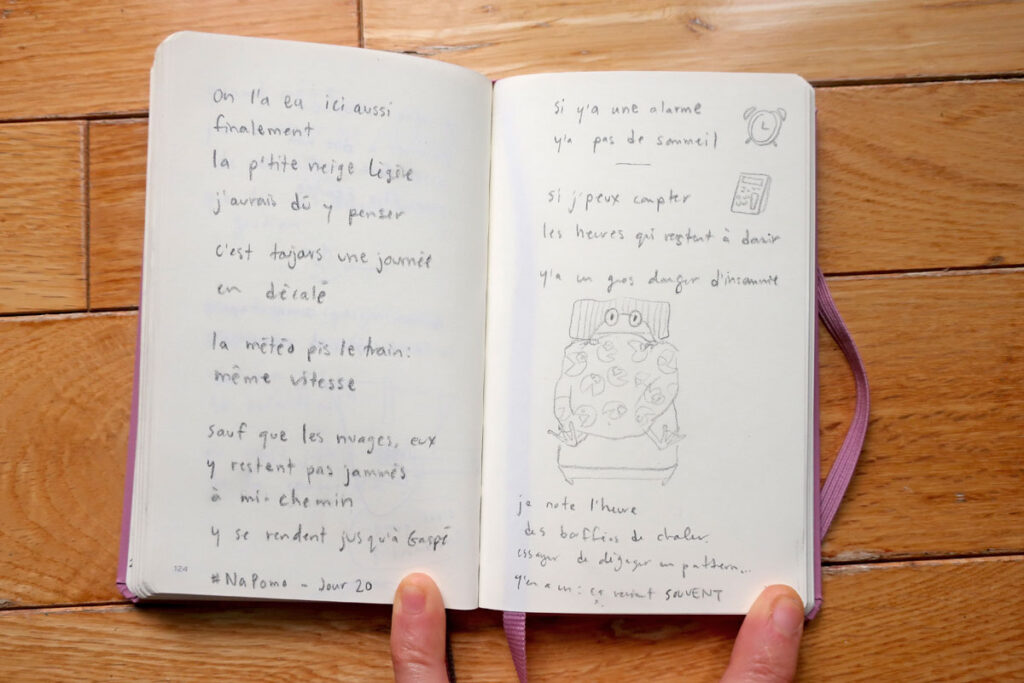 On l'a eu ici aussi
finalement
la p'tite neige légère
j'aurais dû y penser
c'est toujours une journée
en décalé
la météo pis le train:
même vitesse
sauf que les nuages, eux
y restent pas jammés
à mi-chemin
y se rendent jusqu'à Gaspé
124
#NaPoMo - Jour 20
si y'a une alarme
y'a pas de sommeil
si j'peux compter
les heures qui restent à dormir
y'a un gros danger d'insomnie
je note l'heure
des bouffées de chaleur.
essayer de dégager un pattern...
y'en a un: ça revient SOUVENT